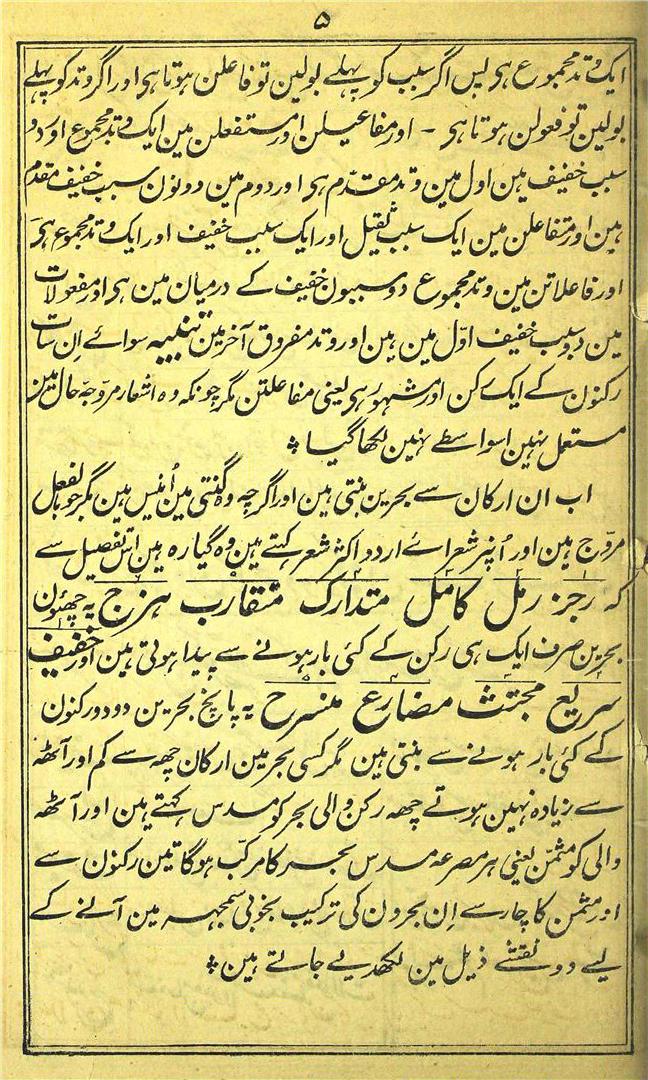 ۵
ایک وتد مجموع ہی پس اگر سبب کو پہلے بولین تو فاعلن ہوتا ہی اور اگر وتد کو پہلے
بولین تو فعولن ہوتا ہی - اور مفاعیلن اور مستفعلن مین ایک وتد مجموع اور دو
سبب خفیف ہین اول مین وتد مقدّم ہی اور دوم مین دونون سبب خفیف مقدم
ہین اور متفاعلن مین ایک سبب ثقیل اور ایک سبب خفیف اور ایک وتد مجموع ہی
اور فاعلاتن مین وتد مجموع دو سببون خفیف کے درمیان مین ہی اور مفعولات
مین دو سبب خفیف اوّل مین ہین اور وتد مفروق آخر مین تنبیہ سوائے اِن سات
رکنون کے ایک رکن اور مشہور ہی یعنی مفاعلتن مگر چونکہ وہ اشعار مروّجہ حال مین
مستعمل نہین اسواسطے نہین لکھا گیا ؞
اب ان ارکان سے بحرین بنتی ہین اور اگرچہ وہ گنتی مین اُنیس ہین مگر جو بالفعل
مروّج ہین اور اُنپر شعرائے اردو اکثر شعر کہتے ہین وہ گیارہ ہین اس تفصیل سے
کہ رجز رمل کامل متدارک متقارب ہزج یہ چھئون
بحرین صرف ایک ہی رکن کے کئی بار ہونے سے پیدا ہوتی ہین اور خفیف
سریع مجتث مضارع منسرح یہ پانچ بحرین دو دو رکنون
کے کئی بار ہونے سے بنتی ہین مگر کسی بحر مین ارکان چھہ سے کم اور آٹھہ
سے زیادہ نہین ہوتے چھہ رکن والی بحر کو مسدس کہتے ہین اور آٹھہ
والی کو مثمّن یعنی ہر مصرعہ مسدس بحر کا مرکّب ہوگا تین رکنون سے
اور مثمن کا چار سے اِن بحرون کی ترکیب بخوبی سمجہہ مین آنے کے
لیے دو نقشے ذیل مین لکھدیے جاتے ہین ؞